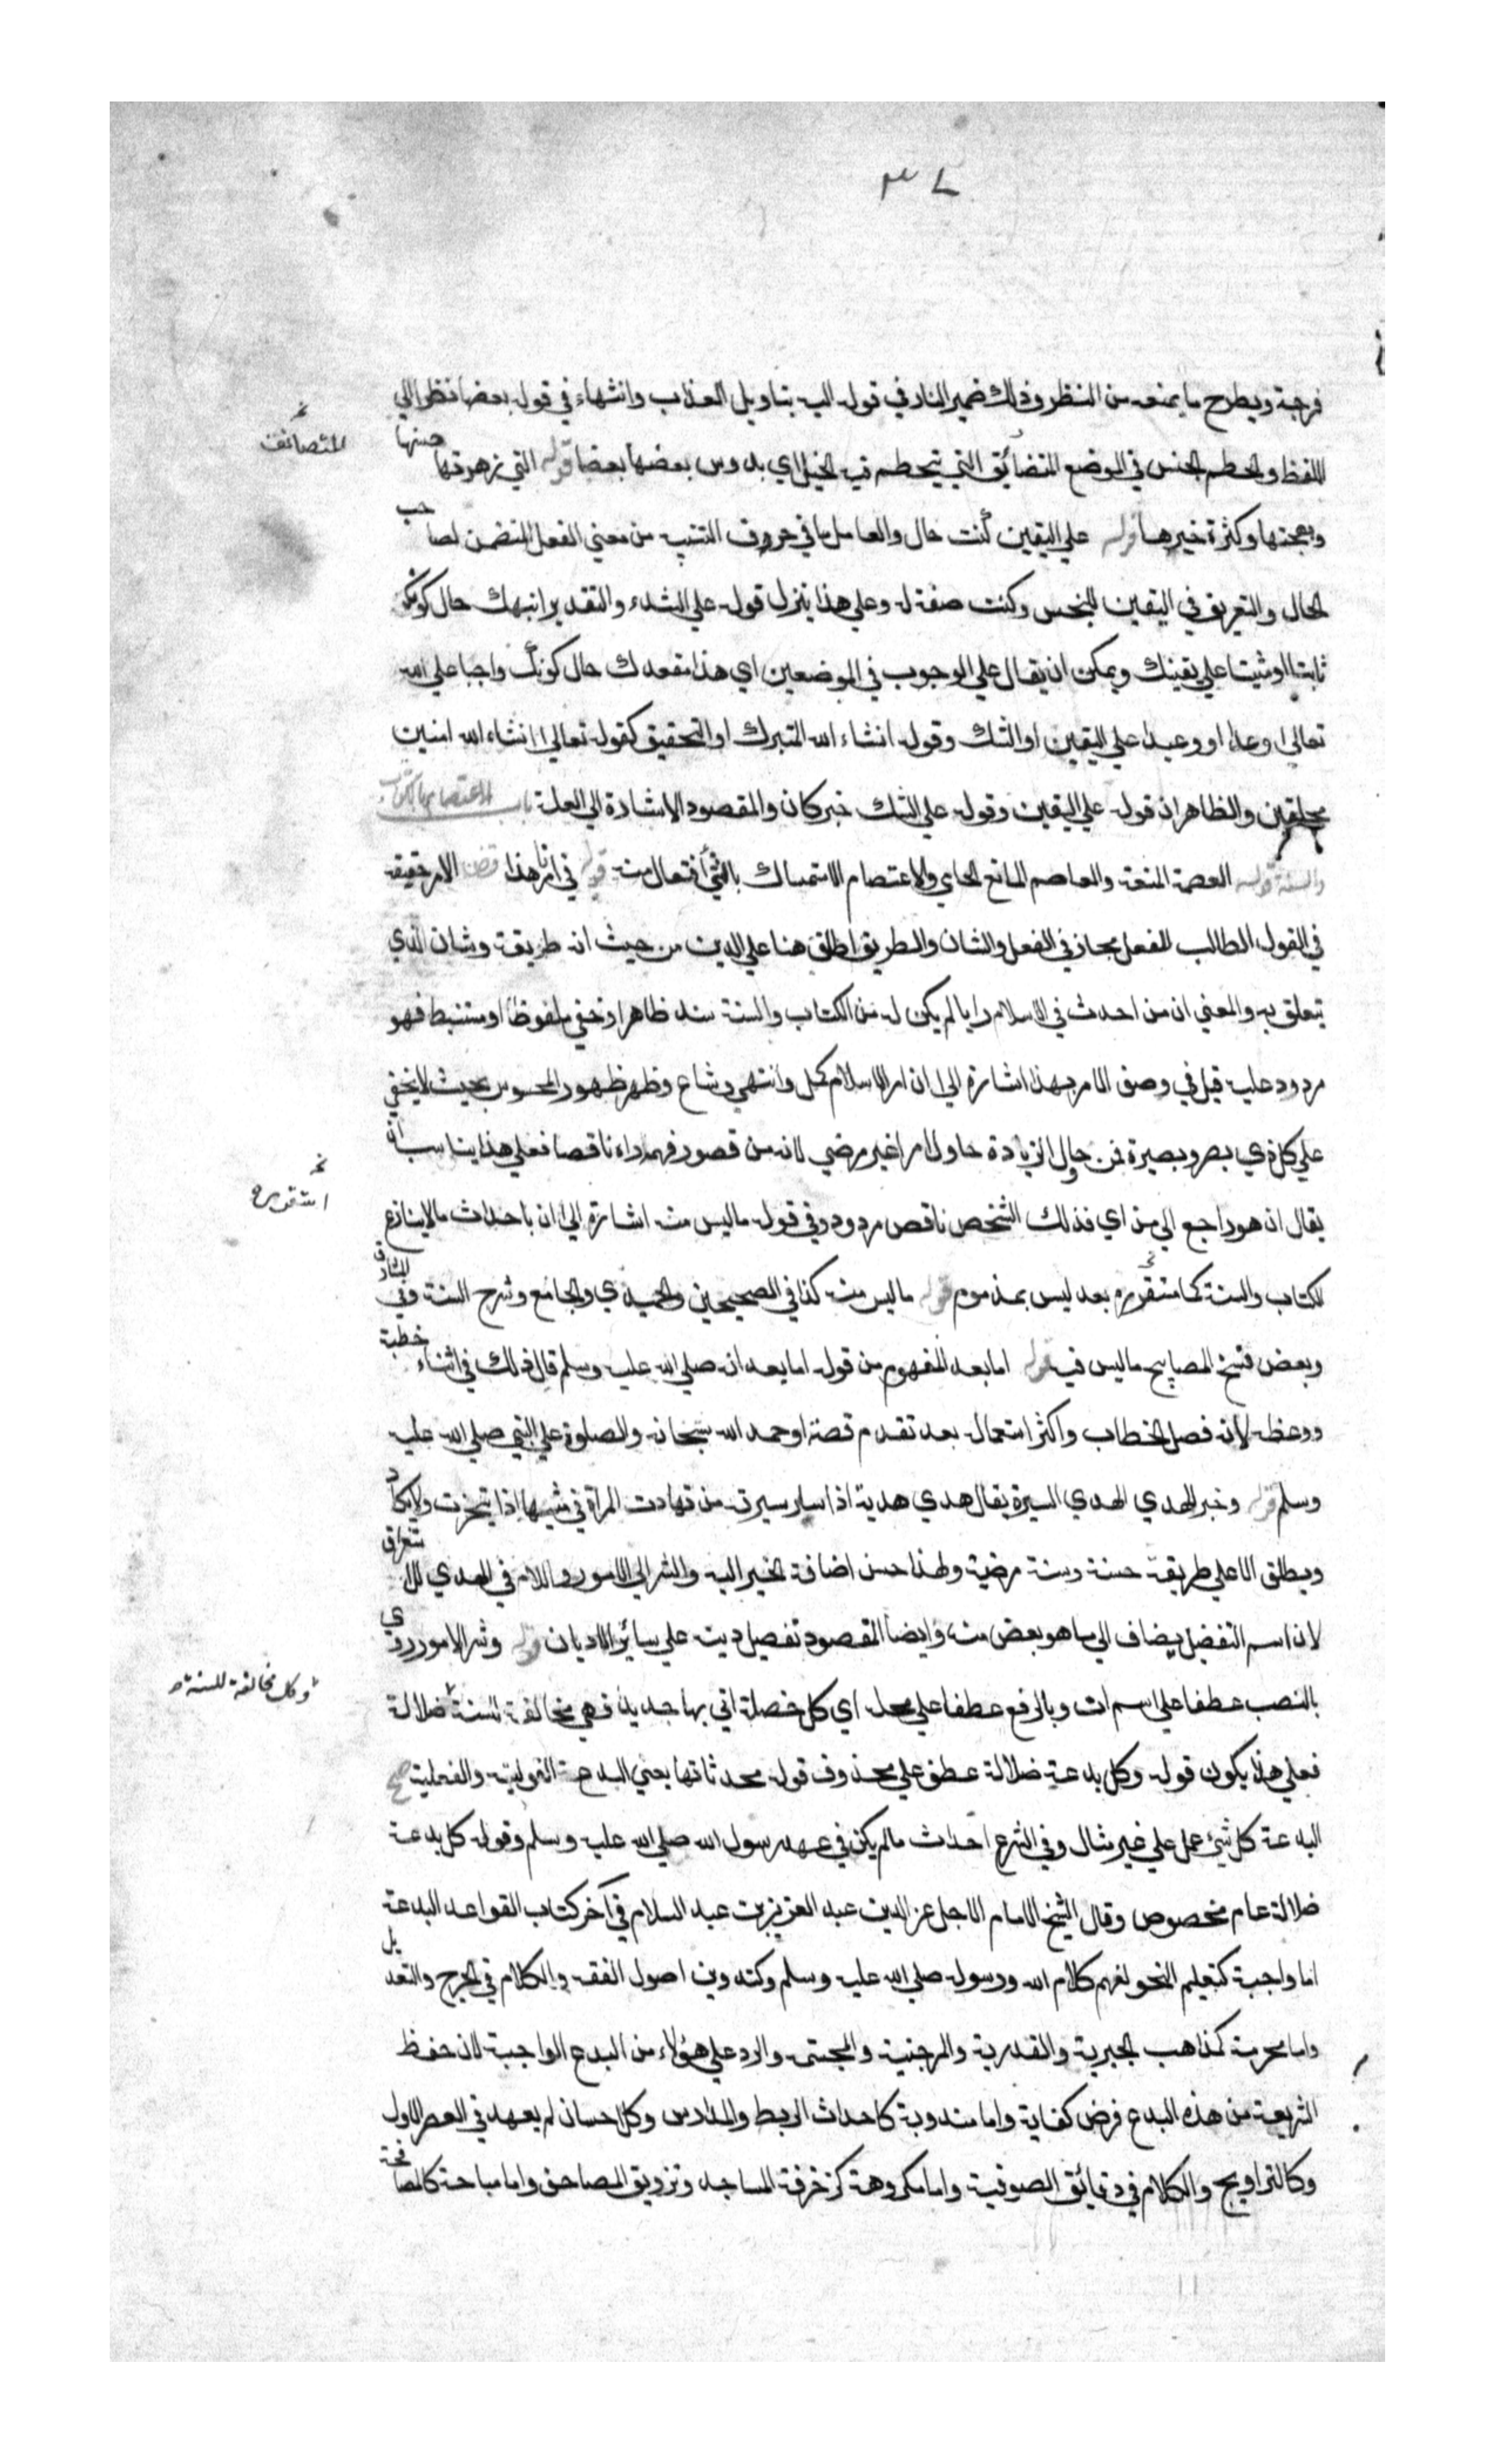 ٣٧
فرجة ويطرح ما يمنعه من النظر وذلك ضمير النار في قوله اليه بتاويل العذاب وانثهاء في قوله بعضها نظرا الي
المتضائق
اللفظ والحطم الحبس في الموضع المتضائق التي يتحطم فيه الخيل اي يدوس بعضها بعضا قوله الي زهرتها حسنها
وبهجتها وكثرة خيرها قوله علي اليقين كنت حال والعامل ما في حروف التنبيه من معني الفعل المتضمن لصاحب
الحال والتعريف في اليقين للجنس وكنت صفة له وعلي هذا ينزل قوله علي الشك والتقدير انبهك حال كونك
ثابتا او مثبتا علي يقينك ويمكن ان يقال علي الوجوب في الموضعين اي هذا مقعدك حال كونك واجبا علي الله
تعالي وعدا او وعيدا علي اليقين او الشك وقوله انشاء الله للتبرك او التحقيق كقوله تعالي انشاء الله امنين
محلقين والظاهر ان قوله علي اليقين وقوله علي الشك خبر كان والمقصود الاشارة الي العلة باب الاعتصام بالكتاب
والسنة قوله العصمة المنعة والعاصم المانع الحامي والاعتصام الاستمساك بالشئ افتعال منه قوله في امرنا هذا الامر حقيقة
في القول الطالب للفعل مجاز في الفعل والشان والطريق اطلق هنا علي الدين من حيث انه طريقه وشانه الذي
يتعلق به والمعني ان من احدث في الاسلام رايا لم يكن له من الكتاب والسنة سند ظاهر او خفي ملفوظ او مستنبط فهو
مردود عليه قيل في وصف الامر بهذا اشارة الي ان امر الاسلام كمل وانتهي وشاع وظهر ظهور المحسوس بحيث لا يخفي
علي كل ذي بصر وبصيرة فمن حاول الزيادة حاول امرا غير مرضي لانه من قصور فهمه راه ناقصا فعلي هذا يناسب ان
يقال ان هو راجع الي من اي فذلك الشخص ناقص مردود وفي قوله ما ليس منه اشارة الي ان احداث ما لا ينازع
الكتاب والسنة كما سنقرره بعد ليس بمذموم قوله ما ليس منه كذا في الصحيحين والحميدي والجامع وشرح السنة وفي المشارق
وبعض نسخ المصابيح ما ليس فيه قوله اما بعد المفهوم من قوله اما بعد انه صلي الله عليه وسلم قال ذلك في اثناء خطبة
ووعظه لانه فصل الخطاب واكثر استعماله بعد تقدم قصة او حمد الله سبحانه والصلوة علي النبي صلي الله عليه
وسلم قوله وخير الهدي الهدي السيرة يقال هدي هدية اذا سار سيرته من تهادت المراة في مشيها اذا تبخترت ولا يكاد
ويطلق الا علي طريقة حسنة وسنة مرضية ولهذا حسن اضافة الخير اليه والشر الي الامور واللام في الهدي للاستغراق
لان اسم التفضيل يضاف الي ما هو بعض منه وايضا المقصود تفضيل دينه علي سائر الاديان قوله وشر الامور روي
وكل مخالفة للسنة
بالنصب عطفا علي اسم ان وبالرفع عطفا علي محله اي كل خصلة اتي بها جديدة فهي مخالفة للسنة ضلالة
فعلي هذا يكون قوله وكل بدعة ضلالة عطف علي محذوف قوله محدثاتها يعني البدعة القولية والفعلية صح
البدعة كل شئ عمل علي غير مثال وفي الشرع احداث ما لم يكن في عهد رسول الله صلي الله عليه وسلم وقوله كل بدعة
ضلالة عام مخصوص وقال الشيخ الامام الاجل عز الدين عبد العزيز بن عبد السلام في آخر كتاب القواعد البدعة
اما واجبة كتعليم النحو لفهم كلام الله ورسوله صلي الله عليه وسلم وكتدوين اصول الفقه والكلام في الجرح والتعديل
واما محرمة كمذاهب الجبرية والقدرية والمرجئية والمجسمة والرد علي هؤلاء من البدع الواجبة لان حفظ
الشريعة من هذه البدع فرض كفاية واما مندوبة كاحداث الربط والمدارس وكل احسان لم يعهد في العصر الاول
وكالتراويح والكلام في دقائق الصوفية واما مكروهة كزخرفة المساجد وتزويق المصاحف واما مباحة كالمصافحة